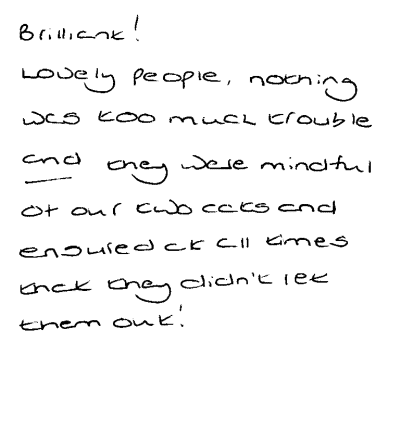 Brilliant!
Lovely people, nothing
was too much trouble
and they were mindful
of our two cats and
ensured at all times
that they didn't let
them out!